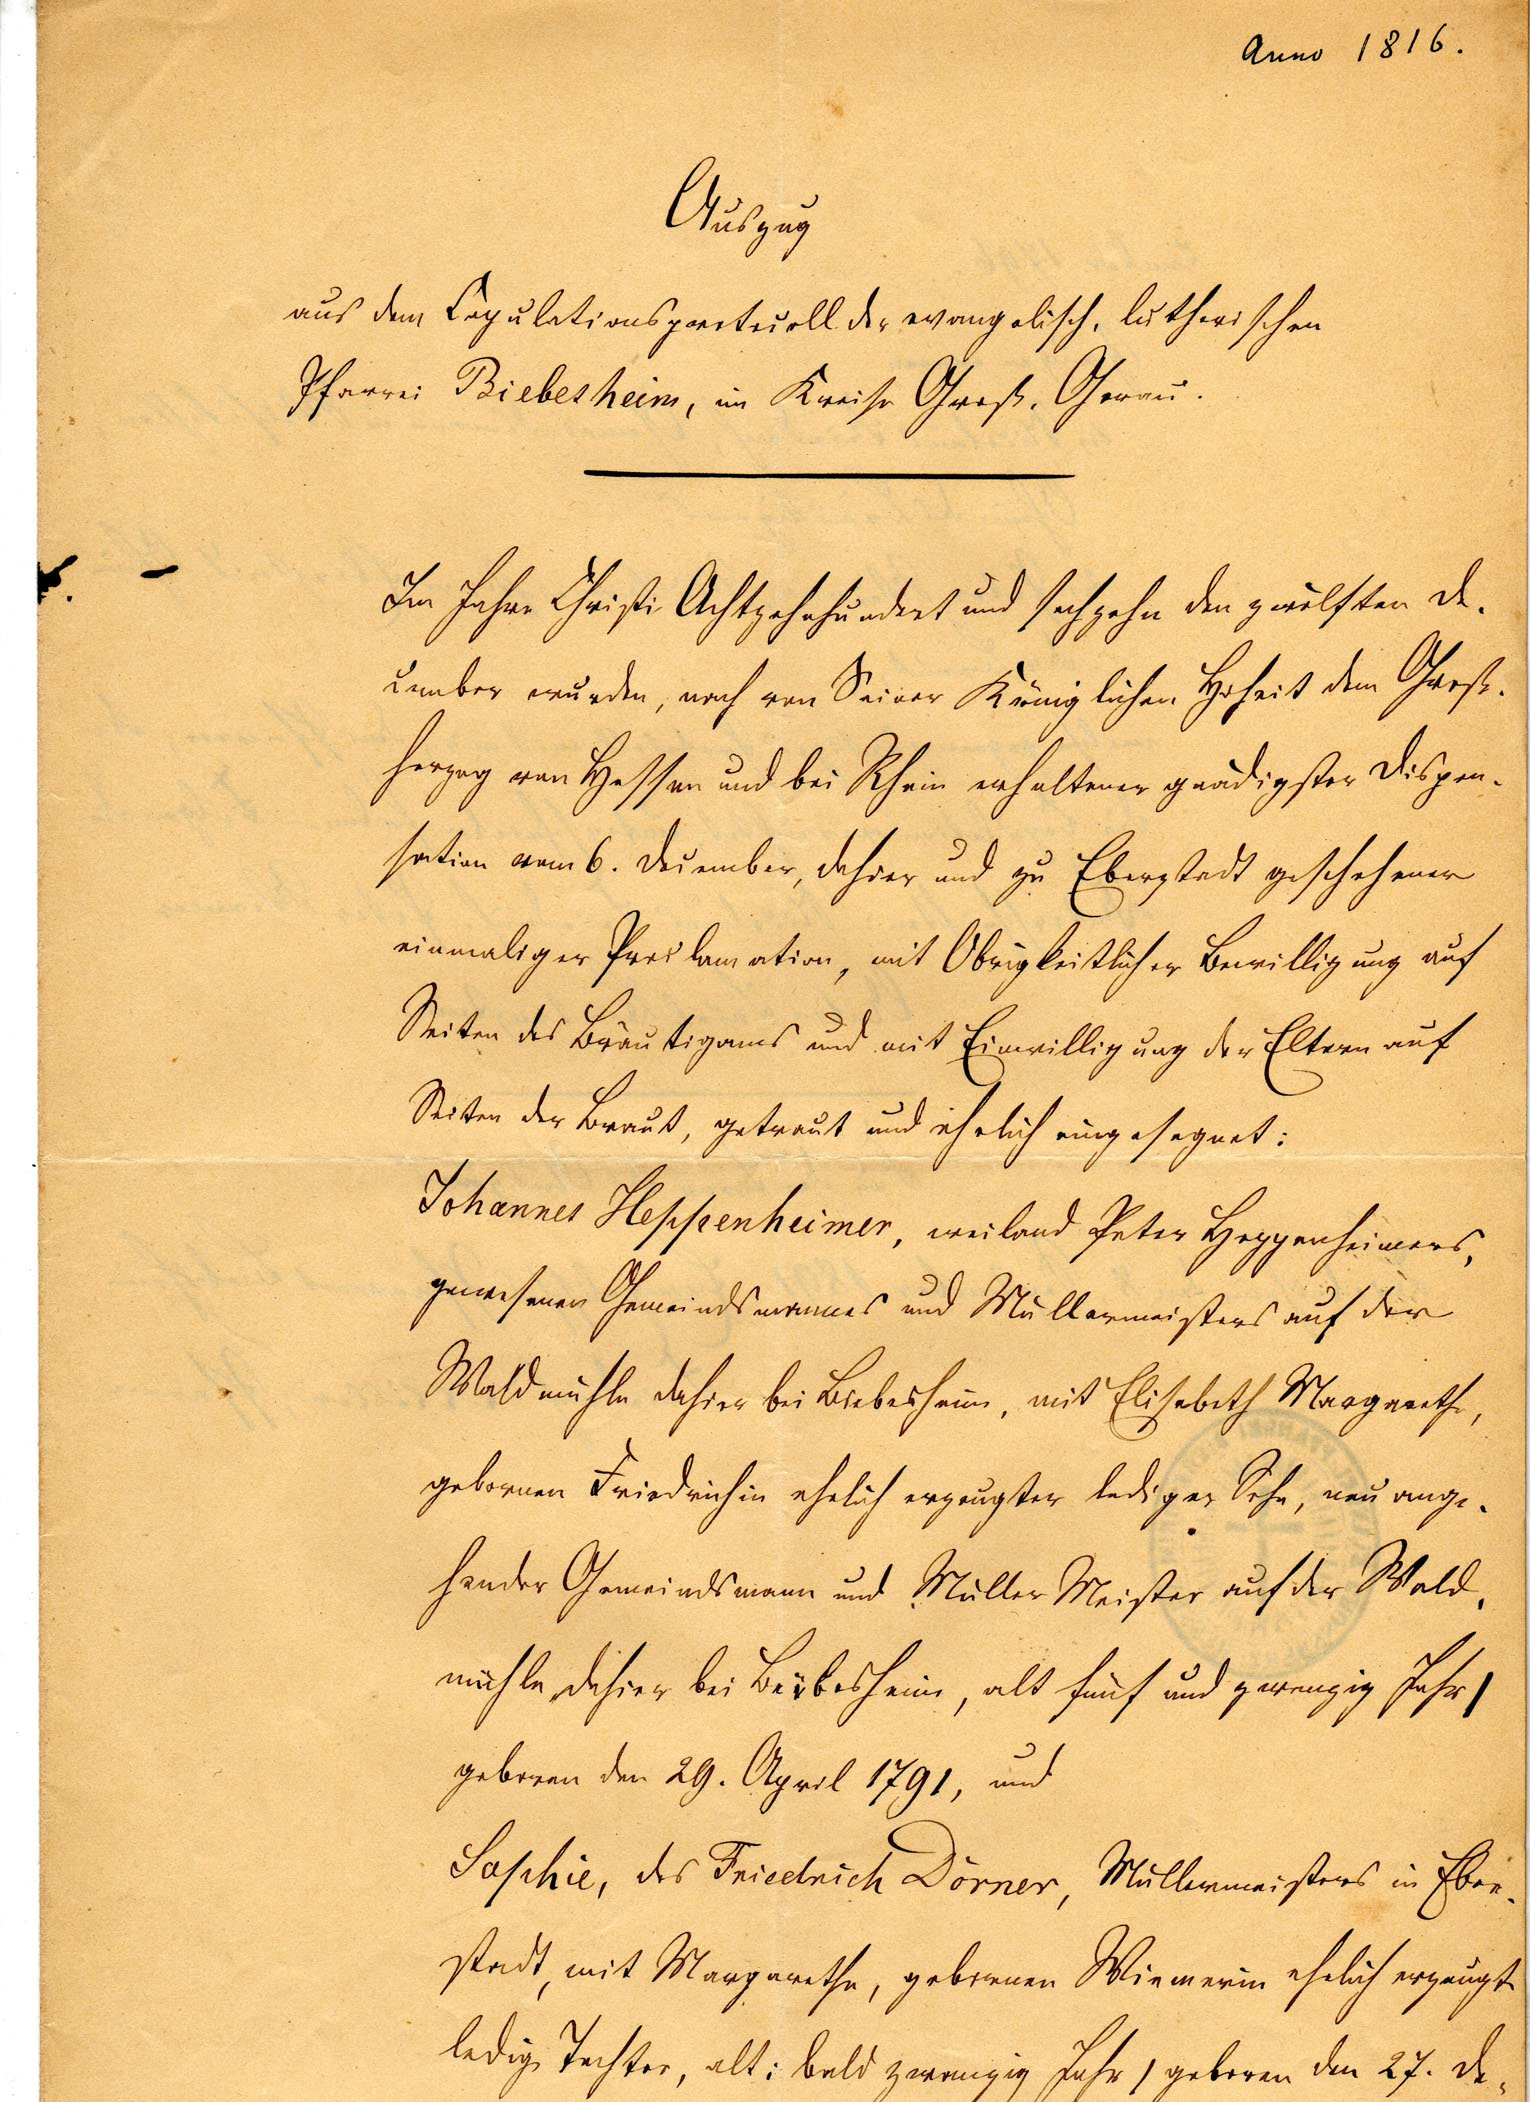 Anno 1816.
Auszug
aus dem Copulationsprotocoll der evangelisch-lutherischen
Pfarrei Biebesheim, im Kreise Groß-Gerau.
Im Jahre Christi Achtzehnhundert und sechzehn den zwölften De-
cember wurden, nach von Seiner Königlichen Hoheit dem Groß-
herzog von Hessen und bei Rhein erhaltener gnädigster Dispen-
sation vom 6. December, dahier und zu Eberstadt geschehener
einmaliger Proclamation, mit Obrigkeitlicher Bewilligung auf
Seiten des Bräutigams und mit Einwilligung der Eltern auf
Seiten der Braut, getraut und ehelich eingesegnet:
Johannes Heppenheimer, weiland Peter Heppenheimers,
gewesenen Gemeindsmannes und Müllermeisters auf der
Waldmühle dahier bei Biebesheim, mit Elisabeth Margarethe,
gebornen Friedrichin ehelich erzeugter lediger Sohn, neu ange-
hender Gemeindsmann und Müller Meister auf der Wald-
mühle dahier bei Biebesheim, alt fünf und zwanzig Jahr/
geboren den 29. April 1791, und
Sophie, des Friedrich Dörner, Müllermeisters in Eber-
stadt, mit Margarethe, gebornen Wiemerin ehelich erzeugte
ledige Tochter, alt: bald zwanzig Jahr / geboren den 27. De-